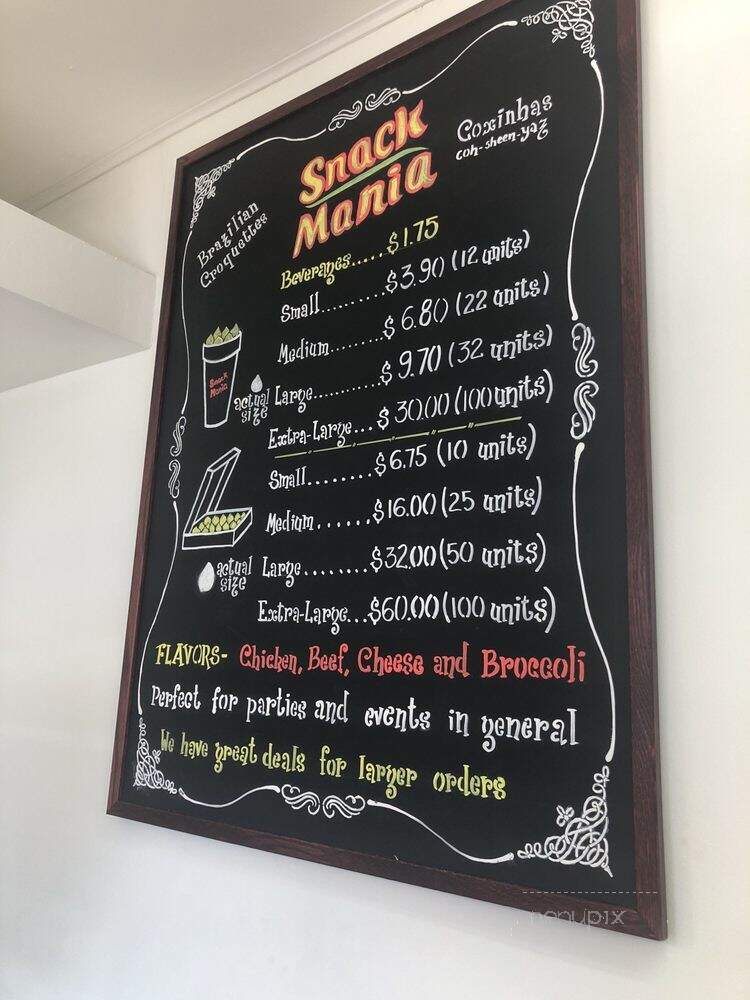 Snack
Mania
Coxinhas
coh-sheen-yaz
Brazilian
Croquettes
Beverages.....$1.75
Small..........$3.90 (12 units)
Medium........$6.80 (22 units)
Large............$9.70 (32 units)
Extra-Large...$30.00 (100 units)
Snack
Mania
actual
size
Small........$6.75 (10 units)
Medium......$16.00 (25 units)
Large........$32.00 (50 units)
Extra-Large...$60.00 (100 units)
actual
size
FLAVORS- Chicken, Beef, Cheese and Broccoli
Perfect for parties and events in general
We have great deals for larger orders
menupix